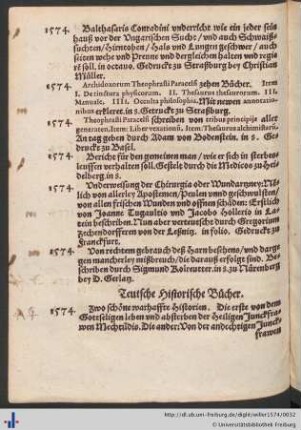 1574. Balthasaris Conradini vnderricht wie ein jeder sein
hauß vor der Vngarischen Sucht / vnd auch Schweiß⸗
suchten / Hirntoben / Hals vnd Lungen geschwer / auch
seiten wehe vnd Preune vnd dergleichen halten vnd regie
rē soll. in octauo. Gedruckt zu Straßburg bey Christian
Müller.
1574. Archidoxorum Theophrasti Paracelsi zehen Bücher. Item
I. De tinctura physicorum. II. Thesaurus thesaurorum. III.
Manuale. IIII. Occulta philosophia. Mit newen annotatio⸗
nibus erkleret. in 8. Getruckt zu Straßburg.
1574. Theophrasti Paracelsi schreiben von tribus principijs aller
generaten. Item: Liber vexationū. Item: Thesaurus alchimistarū.
An tag geben durch Adam von Bodenstein. in 8. Ge⸗
druckt zu Basel.
1574. Bericht für den gemeinen man / wie er sich in sterbens
leuffen verhalten soll. Gestelt durch die Medicos zu Hei⸗
delberg. in 8.
1574. Vnderweisung der Chirurgia oder Wundartzney: Nä⸗
lich von allerley Apostemen / Peulen vnnd geschwulsten /
von allen frischen Wunden vnd offnen schäden: Erstlich
von Joanne Tagaultio vnd Jacobo Hollerio in La⸗
tein beschriben. Nun aber vertеutscht durch Gregorium
Zechendorfferum von der Leßnitz. in folio. Gedruckt zu
Franckfurt.
1574. Von rechtem gebrauch deß Harn besehens / vnd darge
gen mancherley mißbreuch / die darauß erfolgt sind. Be⸗
schriben durch Sigmund Kolreutter. in 8. zu Nürenberg
bey D. Gerlatz.
Teutsche Historische Bücher.
1574. Zwo schöne warhaffte Historien. Die erste von dem
Gottseligen leben vnd absterben der Heiligen Junckfra⸗
wen Mechtildis. Die ander: Von der andechtigen Junck⸗
frawen
http://dl.ub.uni-freiburg.de/diglit/willer1574/0032
© Universitätsbibliothek Freiburg